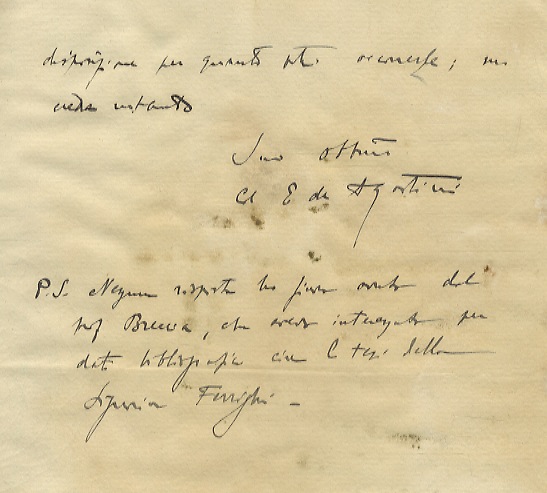 disposizione per quanto potrà occorrerle; mi
creda intanto
Suo obbmo
E de Agostini
P.S. Nessuna risposta ho finora avuto dal
prof Brecca, che avevo interrogato per
dati bibliografici circa la tesi della
Signorina Ferrighi -